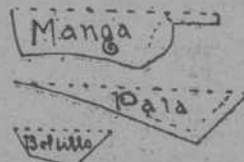 Manga
Pala
Bolsillo